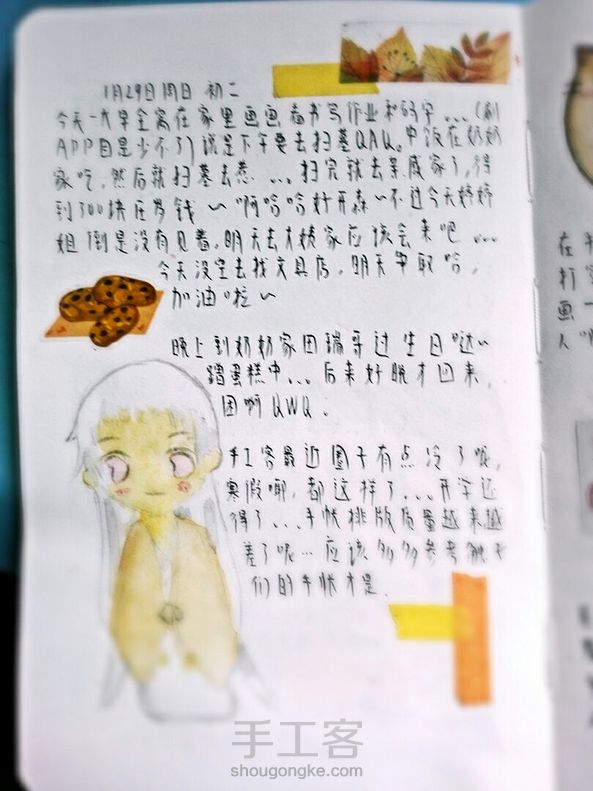 1月29日周日 初二
今天一大早全窝在家里画画看书写作业和码字...(刷
APP自是少不了)说是下午要去扫墓QAQ。中饭在奶奶
家吃，然后就扫墓去惹...扫完就去亲戚家了，得
到300块压岁钱～啊哈哈好开森～不过今天婷婷
姐倒是没有见着，明天去大姨家应该会来吧...
今天没空去找文具店，明天争取哈，
加油啦～
晚上到奶奶家因瑞哥过生日哒～
蹭蛋糕中...后来好晚才回来，
困啊QWQ.
手工客最近圈子有点冷了呢，
寒假嘞，都这样了...开学还
得了...手帐排版质量越来越
差了呢...应该多多参考触手
们的手帐才是.
在
打
画一
人
手工客
shougongke.com